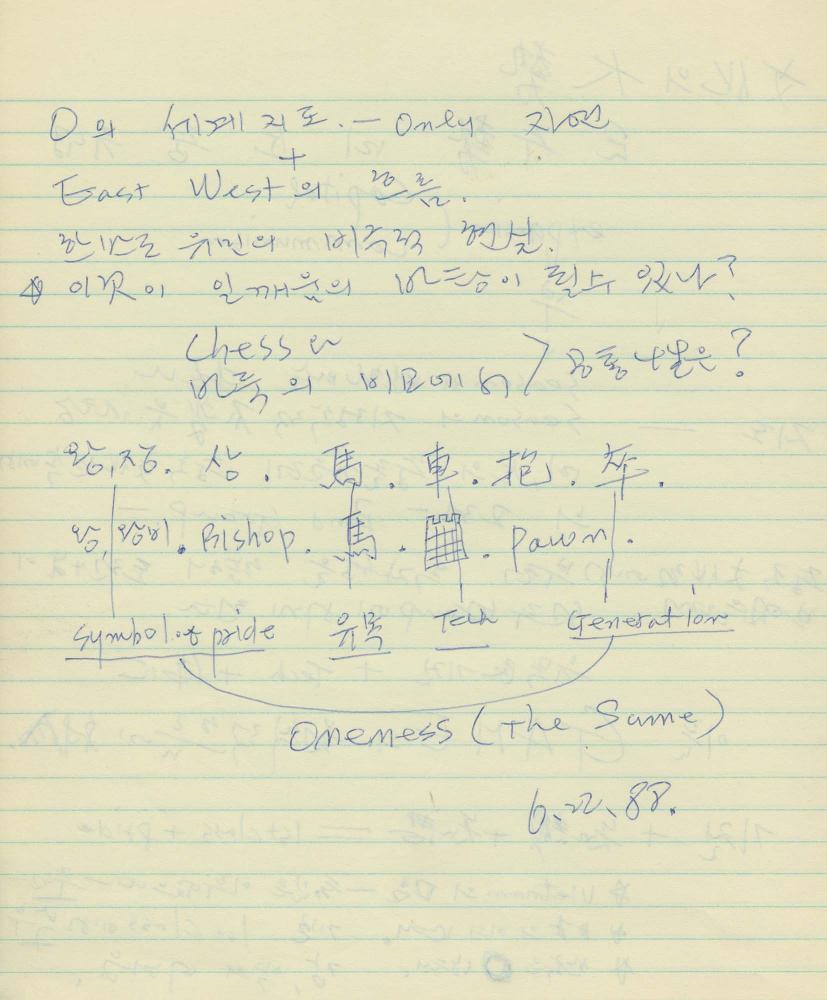 O의 세계지도. — Only 자연
+
East West의 흐름.
유민의 비극적 현실.
이것이 일깨움의 바탕이 될수 있나?
Chess와
바둑의 비교에서 > 공통 나blank은?
왕, 장. 상. 馬. 車. 抱. 卒.
왕, 왕비. Bishop. 馬. . pawn.
Symbol of pride 유목 Tech Generation
Oneness (The Same)
6.22.88.